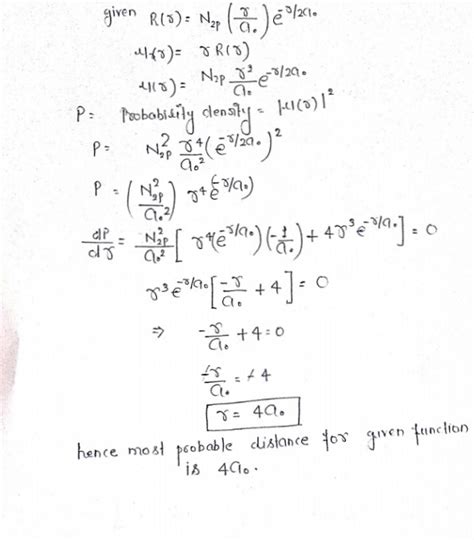 given R(r) = N₂ₚ (r/a₀) e^(-r/2a₀)
u(r) = r R(r)
u(r) = N₂ₚ r²/a₀ e^(-r/2a₀)
P = Probability density = |u(r)|²
P = N₂ₚ² r⁴/a₀² (e^(-r/2a₀))²
P = (N₂ₚ²/a₀²) r⁴ e^(-r/a₀)
dP/dr = N₂ₚ²/a₀² [ r⁴(e^(-r/a₀))(-1/a₀) + 4r³e^(-r/a₀) ] = 0
r³e^(-r/a₀) [ -r/a₀ + 4 ] = 0
⇒ -r/a₀ + 4 = 0
-r/a₀ = -4
r = 4a₀
hence most probable distance for given function
is 4a₀.